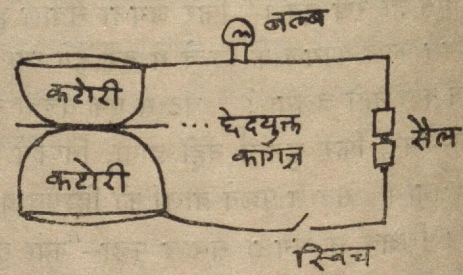 बल्ब
कटोरी
... छेदयुक्त
कागज़
सैल
कटोरी
स्विच